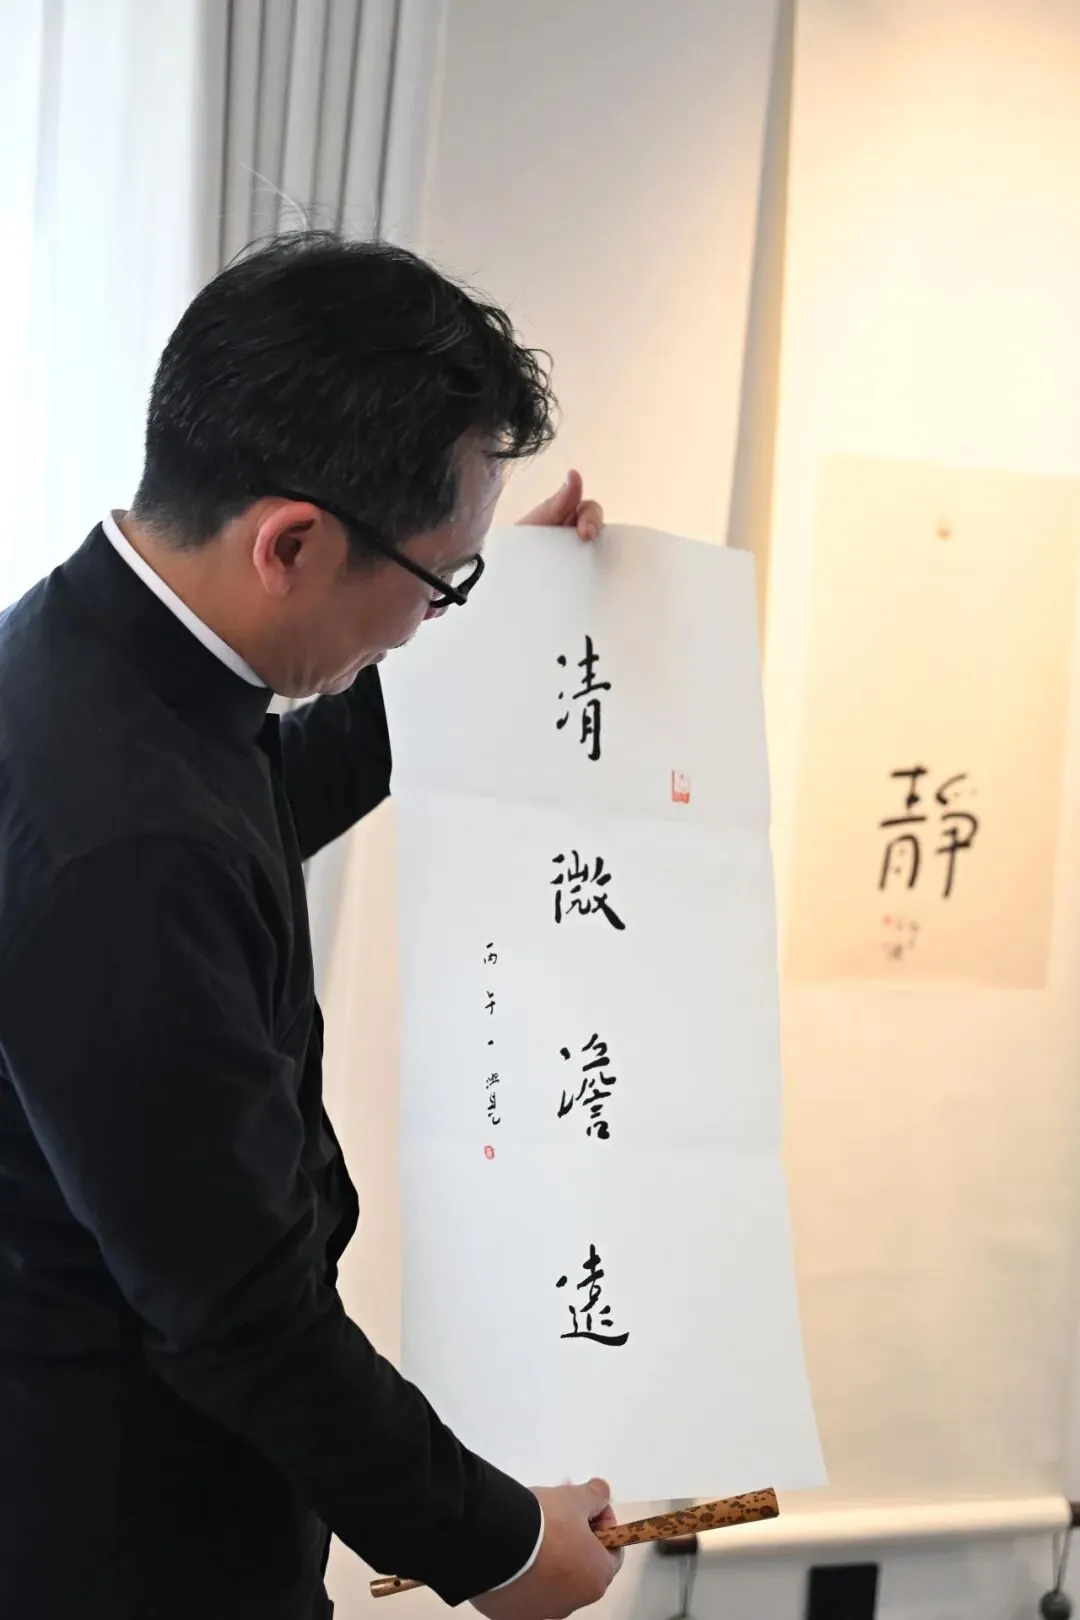 清微澹遠
丙午
靜